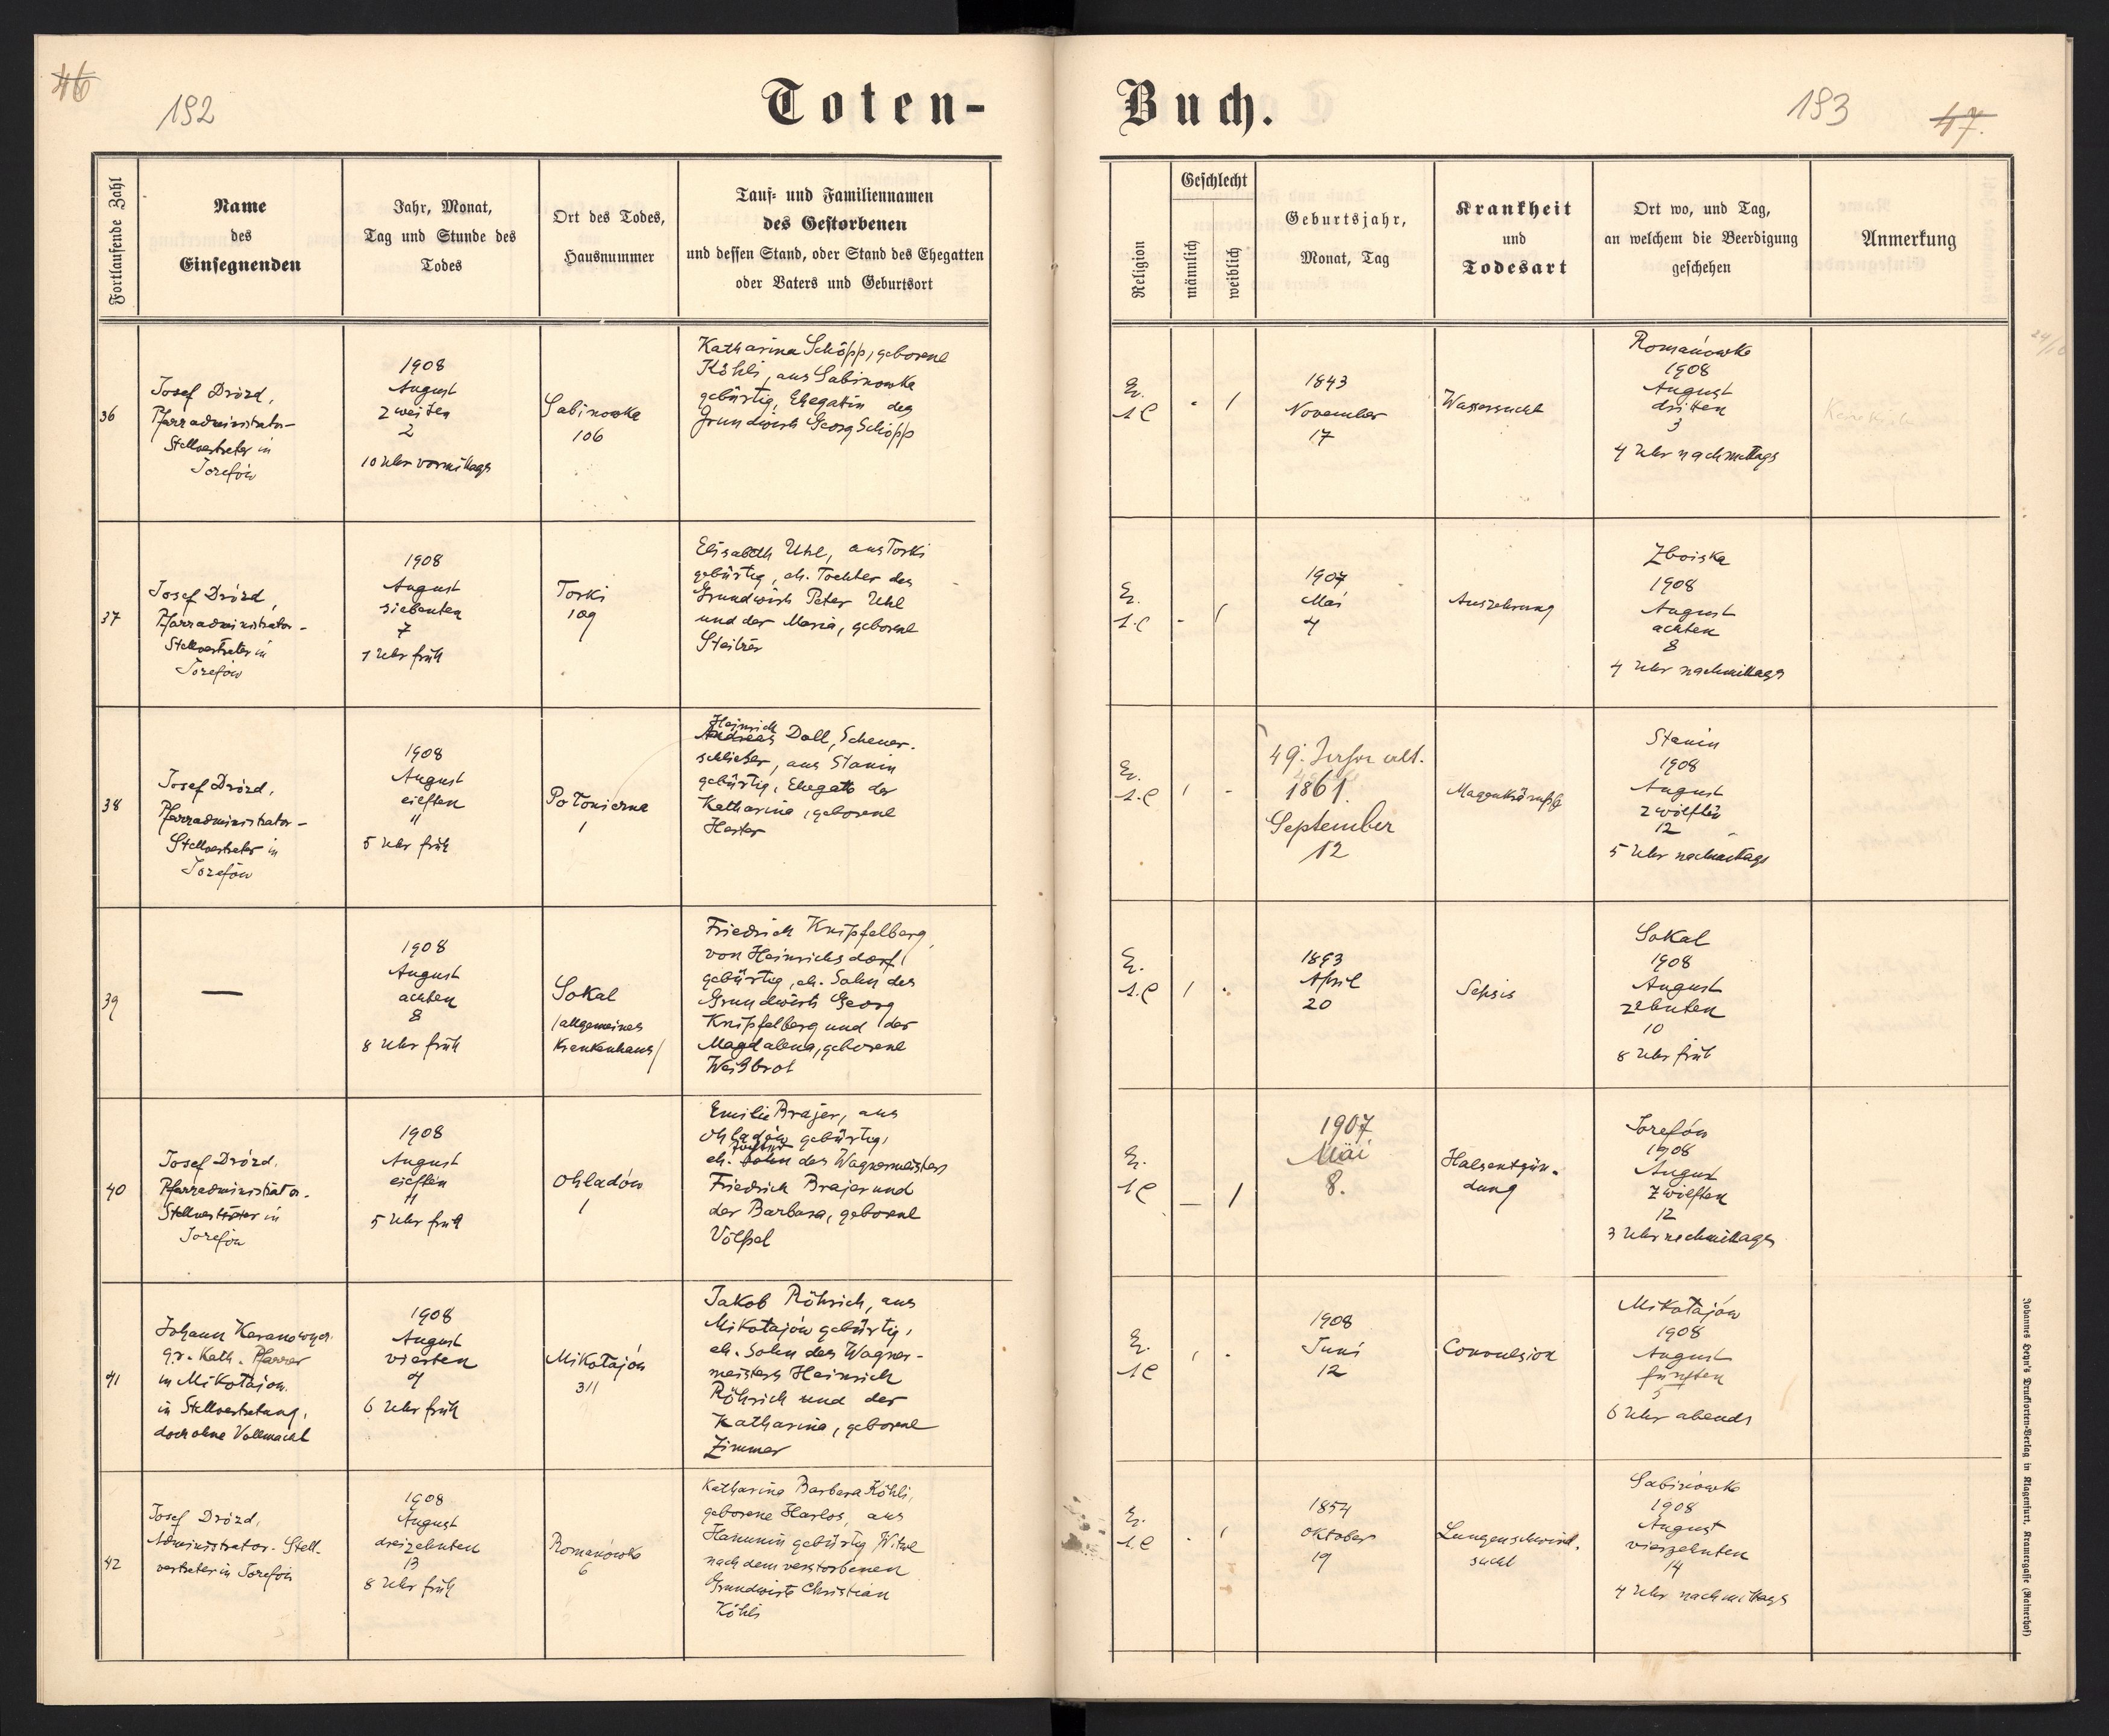 46
192
Toten-
Buch.
193
47.
Fortlaufende Zahl
Name
des
Einsegnenden
Jahr, Monat,
Tag und Stunde des
Todes
Ort des Todes,
Hausnummer
Tauf- und Familiennamen
des Gestorbenen
und dessen Stand, oder Stand des Ehegatten
oder Vaters und Geburtsort
Religion
Geschlecht
männlich
weiblich
Geburtsjahr,
Monat, Tag
Krankheit
und
Todesart
Ort wo, und Tag,
an welchem die Beerdigung
geschehen
Anmerkung
36
Josef Drózd,
Pfarradministrator-
Stellvertreter in
Józefów
1908
August
zweiten
2
10 Uhr vormittags
Sabinowka
106
Katharina Schöpp, geborene
Köhli, aus Sabinowka
gebürtig, Ehegattin des
Grundwirth Georg Schöpp
Ev.
1
1843
November
17
Wassersucht
Romanówka
1908
August
dritten
3
4 Uhr nachmittags
37
Josef Drózd,
Pfarradministrator-
Stellvertreter in
Józefów
1908
August
siebenten
7
1 Uhr früh
Torki
109
Elisabeth Uhl, aus Torki
gebürtig, eh. Tochter des
Grundwirth Peter Uhl
und der Maria, geborene
Ev.
-
1907
Mai
4
Auszehrung
Zboiska
1908
August
achten
8
4 Uhr nachmittags
38
Josef Drózd,
Pfarradministrator-
Stellvertreter in
Józefów
1908
August
eilften
11
5 Uhr früh
Potonierna
1
Heinrich
Andreas Doll, Scheuer-
schließer, aus Stanin
gebürtig, Ehegatte der
Katharina, geborene
Ev.
-
49. Jahre alt.
1861
September
12
Magenkrämpfe
Stanin
1908
August
zwölften
12
5 Uhr nachmittags
39
—
1908
August
achten
8
8 Uhr früh
Sokal
/allgemeines
Krankenhaus/
Friedrich Knipfelberg,
von Heinrichsdorf,
gebürtig, eh. Sohn des
Grundwirth Georg
Knipfelberg und der
Magdalena, geborene
Weißbrot
Ev.
1893
April
20
Sepsis
Sokal
1908
August
zehnten
10
8 Uhr früh
40
Josef Drózd,
Pfarradministrator-
Stellvertreter in
Józefów
1908
August
eilften
11
5 Uhr früh
Ohladów
1
Emilie Brajer, aus
Ohladów gebürtig,
Tochter
eh. Sohn des Wagnermeisters
Friedrich Brajer und
der Barbara, geborene
Völpel
Ev.
— 1
1907
Mai
8.
Halsentzün-
dung
Józefów
1908
August
zwölften
12
3 Uhr nachmittags
41
Johann
gr. Kath. Pfarrer
in Mikołajów
in Stellvertretung,
doch ohne Vollmacht
1908
August
vierten
4
6 Uhr früh
Mikołajów
311
Jakob Röhrich, aus
Mikołajów gebürtig,
eh. Sohn des Wagner-
meisters Heinrich
Röhrich und der
Katharina, geborene
Zimmer
Ev.
1908
Juni
12
Convulsion
Mikołajów
1908
August
fünften
5
6 Uhr abends
42
Josef Drózd,
Administrator-Stell-
vertreter in Józefów
1908
August
dreizehnten
13
8 Uhr früh
Romanówka
6
Katharina Barbara Köhli,
geborene Harlos, aus
Hanunin gebürtig, Witwe
nach dem verstorbenen
Grundwirte Christian
Köhli
Ev.
1854
Oktober
19
Lungenschwind-
sucht
Sabinówka
1908
August
vierzehnten
14
4 Uhr nachmittags
Johannes Heyn's Drucksorten-Verlag in Klagenfurt, Kramergasse (Rainerhof)